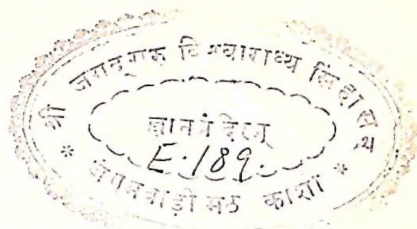 श्री जगद्गुरु विश्वाराध्य सिंहासन
ज्ञानमंदिरम्
E.189.
* जंगमवाड़ी मठ काशी *